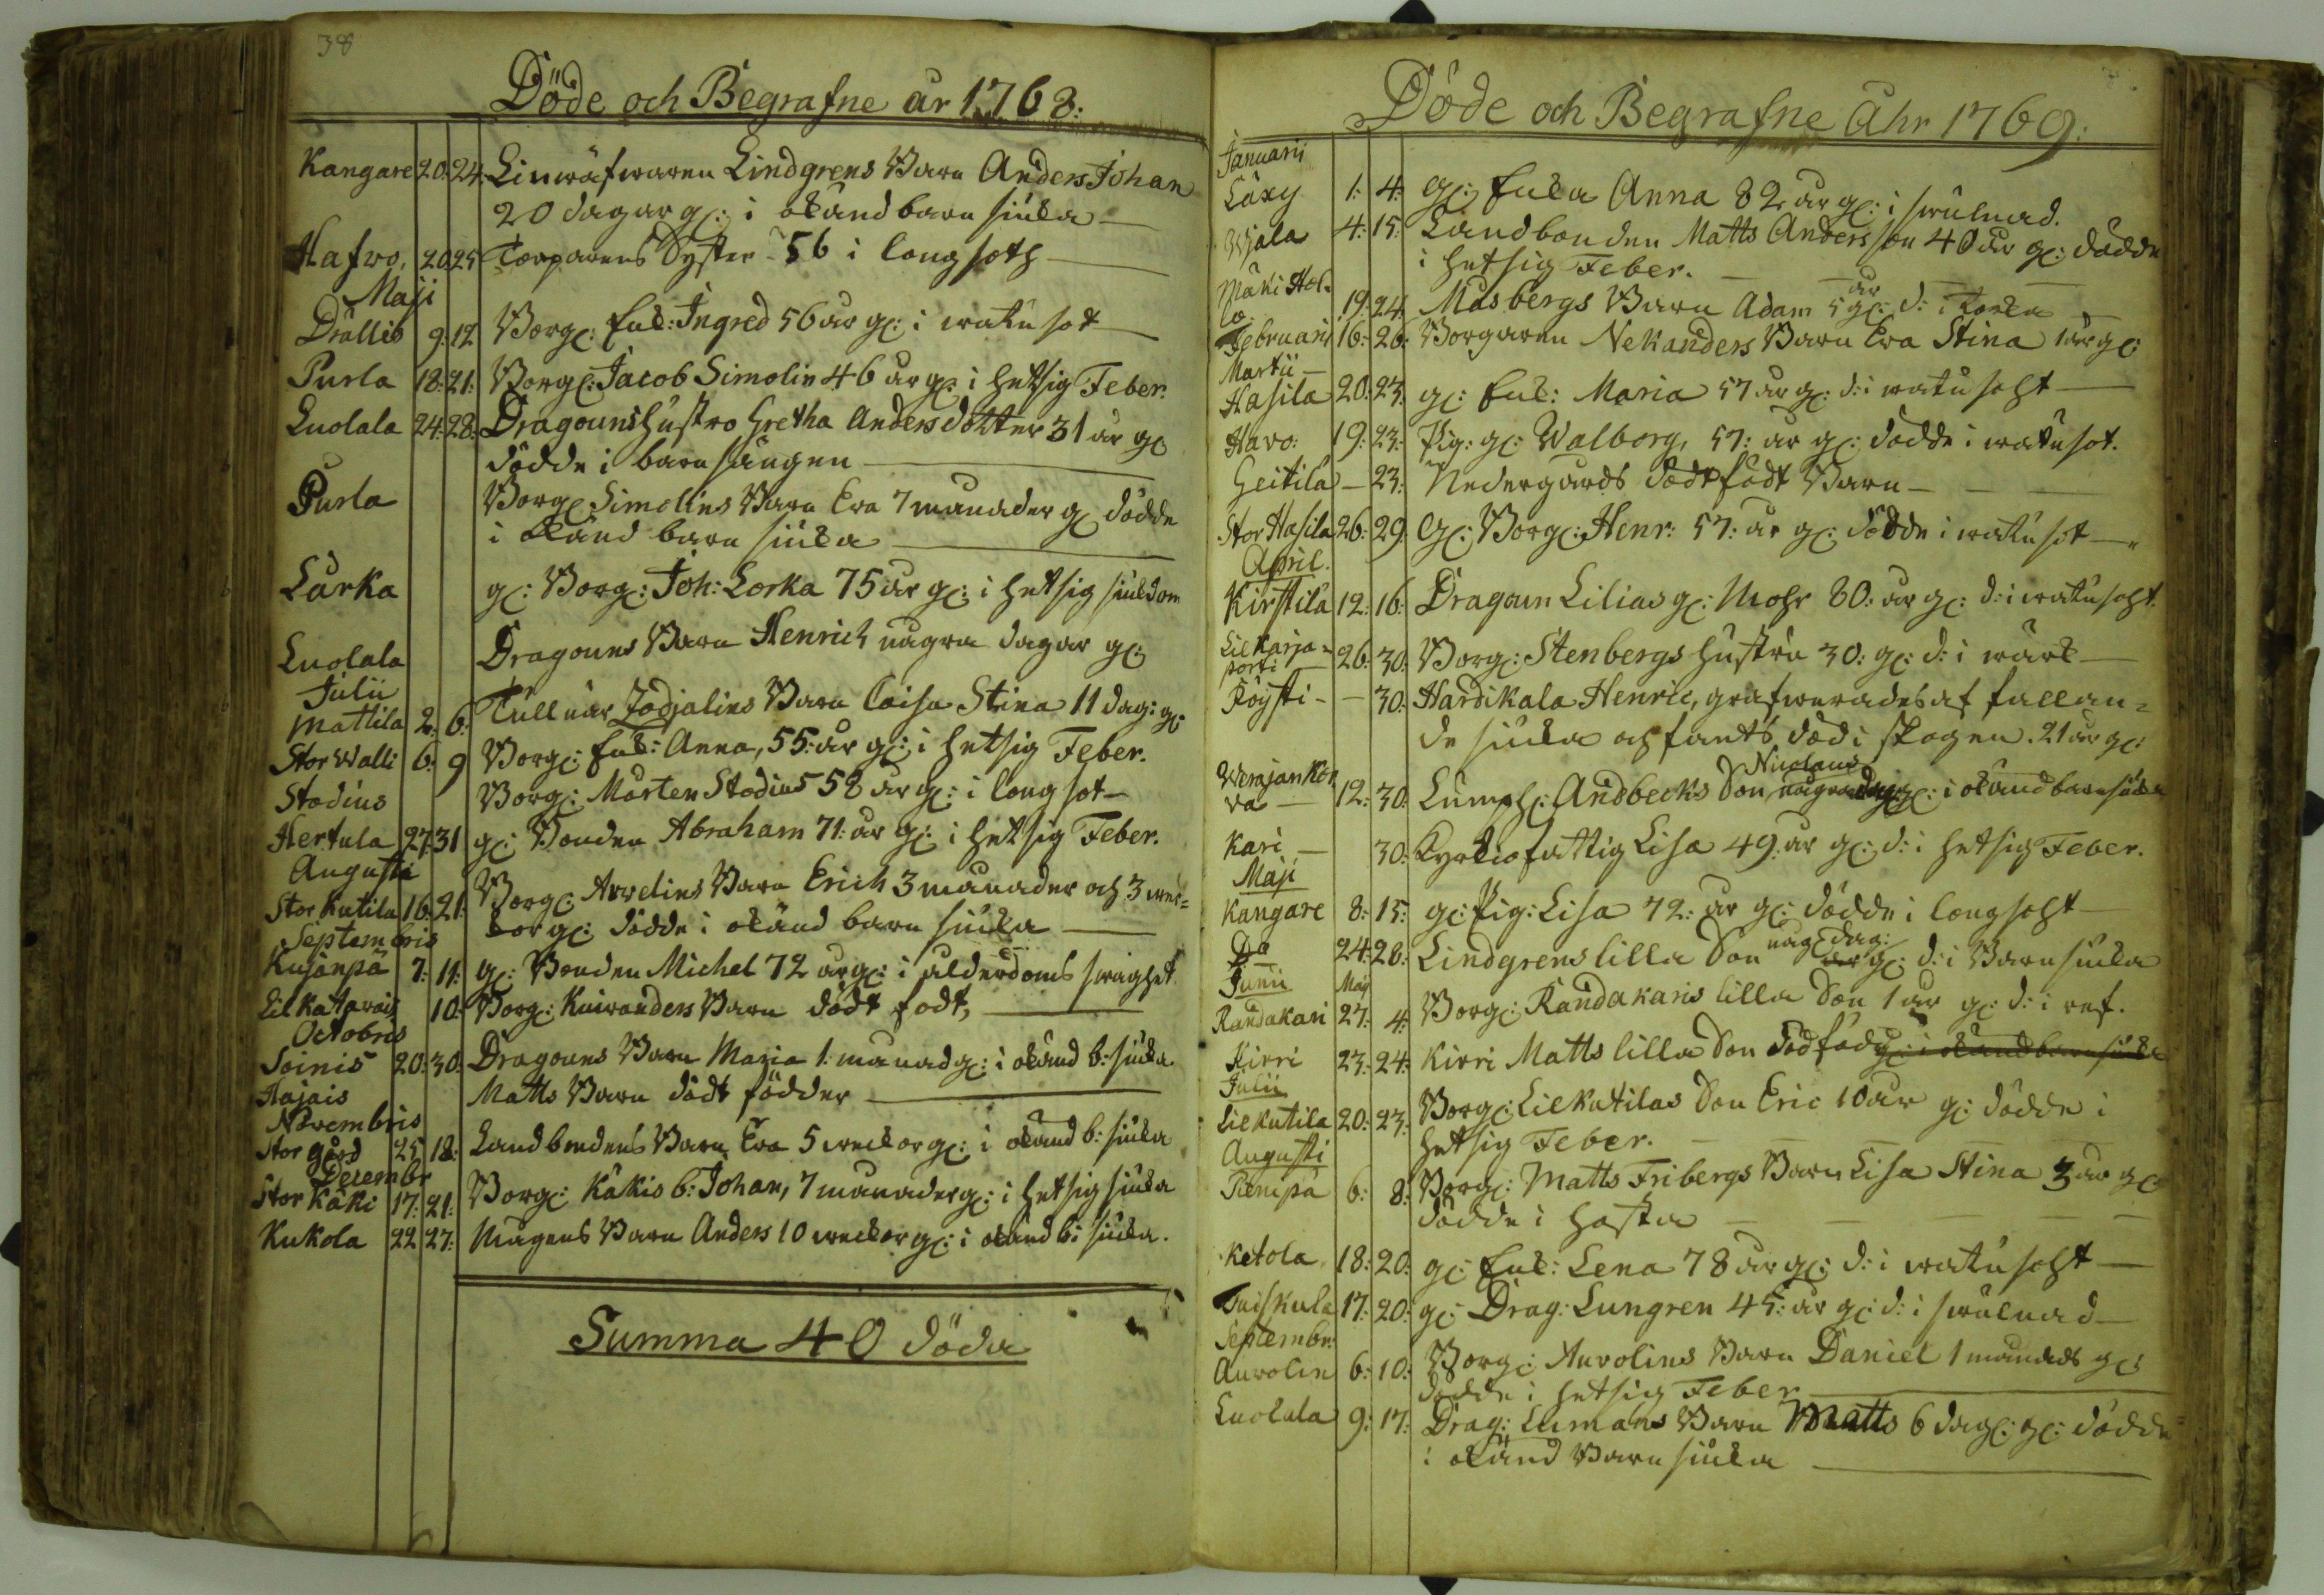 38
Döde och Begrafne år 1768:
Kangare 20. 24. Linwäfwaren Lindgrens Barn Anders Johan
20 dagar gl: i okänd barn siuka
Hafvo, 20 25 Torparens Syster 56 i longsoth
Maji
Drällis 9: 12 Borgl: Enk: Ingred 56 år gl: i watusot
Purla 18: 21: Borgl: Jacob Simolin 46 år gl: i hetsig Feber.
Luolala 24: 28: Dragouns hustro Gretha Anders dotter 31 år gl
dödde i barnsängen
Purla Borgl Simolins Barn Eva 7 månader gl dödde
i okänd barn siuka
Lärka gl: Borg: Joh: Lorka 75 år gl: i hetsig siukdom
Luolala Dragouns Barn Henrich några dagar gl:
Julii
Mattila 2: 6: Tullnär Zodjalins Barn Caisa Stina 11 dag: gl:
Stor Walli 6: 9 Borgl: Enk: Anna, 55: år gl: i hetsig Feber.
Stodius Borg: Mårten Stodius 58 år gl: i longsot
Hertula 27 31 gl: Bonden Abraham 71: år gl: i hetsig Feber.
Augusti
Stor Kutila 16: 21: Borgl: Arvelins Barn Erich 3 månader och 3 wec=
kor gl: dödde i okänd barn siuka
Septembris
Kujanpä 7: 11: gl: Bonden Michel 72 år gl: i ålderdoms swaghet
Lil Katavais 10: Borg: Kuivanders Barn dödt födt,
Octobris
Soinis 20: 30: Dragouns Barn Maria 1: månad gl: i okänd b: siuka.
Hajais Matts Barn dödt födder
Novembris
Stor gård 25 18: Landbondens Barn Eva 5 weckor gl: i okänd b: siuka
Decembr
Stor Käki 17: 21: Borgl: Käkis b: Johan, 7 månader gl: i hetsig siuka
Kukola 22 27: Mågens Barn Anders 10 weckor gl: i okänd b: siuka.
Summa 40 döda
Döde och Begrafne åhr 1769:
Januarii
Laxy 1: 4: gl: Enka Anna 82 år gl: i swulnad.
Wjala 4: 15: Landbonden Matts Andersson 40 år gl: dödde
i hetsig Feber.
Mäki Hol=
lo 19: 24 Masbergs Barn Adam 5 år gl: d: i Koska
Februarii 16: 26: Borgaren Nekanders Barn Eva Stina 1 år gl:
Martii
Hasila 20: 23: gl: Enk: Maria 57 år gl: d: i watusoht
Havo: 19: 23: Pig: gl: Walborg, 57: år gl: dödde i watusot.
Geitila 23: Nedergårds dödtfödt Barn
Stor Hasila 26: 29 Gl: Borgl: Henr: 57: år gl: dödde i watusot
April.
Kirstila 12: 16: Dragoun Lilias gl: Mohr 80: år gl: d: i watusoht
Lil Karja=
porti 26: 30: Borg: Stenbergs hustru 30: gl: d: i wärk
Röysti 30: Hardikala Henric, grasserades af fallan=
de siuka och fants död i skogen. 21 år gl:
Werajankor
va 12: 30: Lumph: Andbecks Son Nicolaus några dag: gl: i okänd barnsiuka
Kari 30: Kyrkiofattig Lisa 49: år gl: d: i hetsig Feber.
Maji
Kangare 8: 15: gl: Pig: Lisa 72: år gl: dödde i longsoht
Do 24: 28: Lindgrens lilla Son någ dag: gl: d: i Barnsiuka
Junii Maij
Randakari 27: 4: Borgl: Randakaris lilla Son 1 år gl: d: i ref.
Kirri 23: 24: Kirri Matts lilla Son dödföd gl: i okänd barnsiuka
Julii
Lilkutila 20: 23: Borgl: Lilkutilas Son Eric 10 år gl: dödde i
hetsig Feber.
Augusti
Pienipä 6: 8: Borgl: Matts Fribergs Barn Lisa Stina 3 år gl:
dödde i hosta
Ketola 18: 20: gl: Enk: Lena 78 år gl: d: i watusoht
Tuiskula 17: 20: gl: Drag: Lungren 45: år gl: d: i swulnad
Septembr:
Auvolin 6: 10: Borgl: Auvolins Barn Daniel 1 månads gl:
dödde i hetsig Feber
Luolala 9: 17: Drag: Lumans Barn Matts 6 dag: gl: dödde
i okänd Barnsiuka